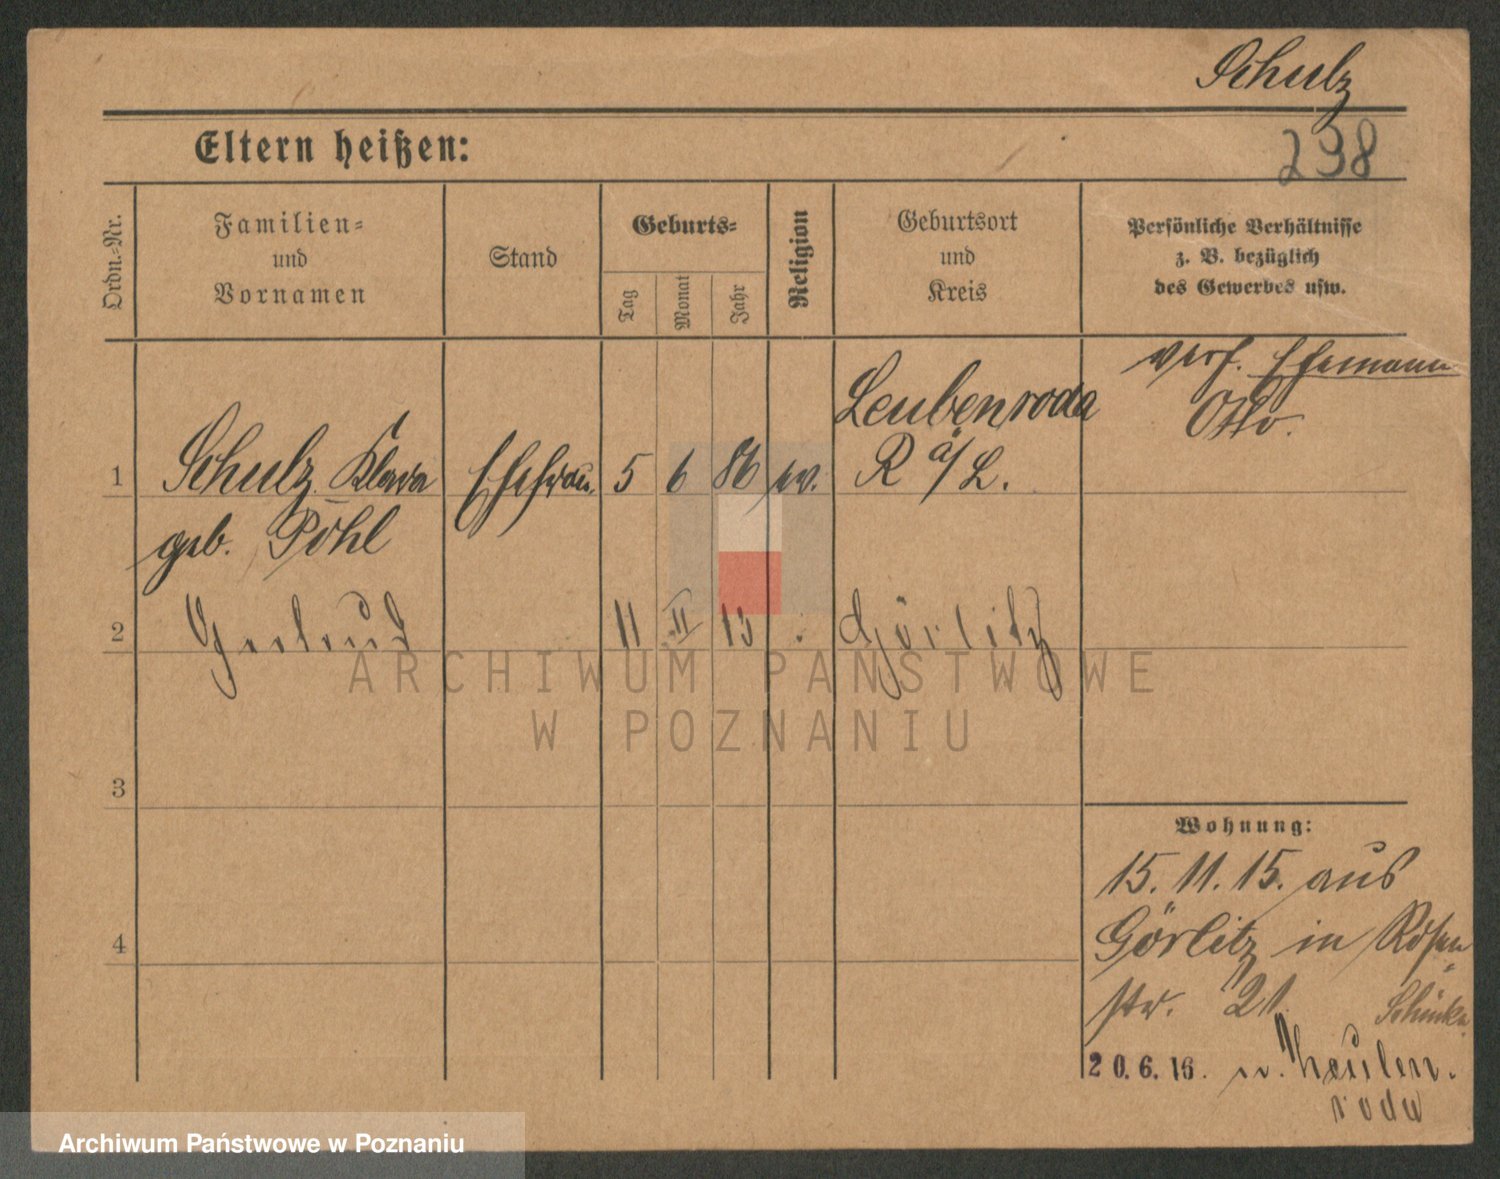 Schulz
238
Eltern heißen:
Ordn.-Nr.
Familien-
und
Vornamen
Stand
Geburts-
Tag
Monat
Jahr
Religion
Geburtsort
und
Kreis
Persönliche Verhältnisse
z. B. bezüglich
des Gewerbes usw.
verh. Ehemann
Otto.
1 Schulz Klara Ehefrau 5 6 86 ev. Leubenroda
R a/L.
geb. Pohl
2 Gertrud 11 II 13 Görlitz
3
4
Wohnung:
15. 11. 15. aus
Görlitz in Rosen
str. 21.
20.6.16. n.
roda
ARCHIWUM PAŃSTWOWE
W POZNANIU
Archiwum Państwowe w Poznaniu